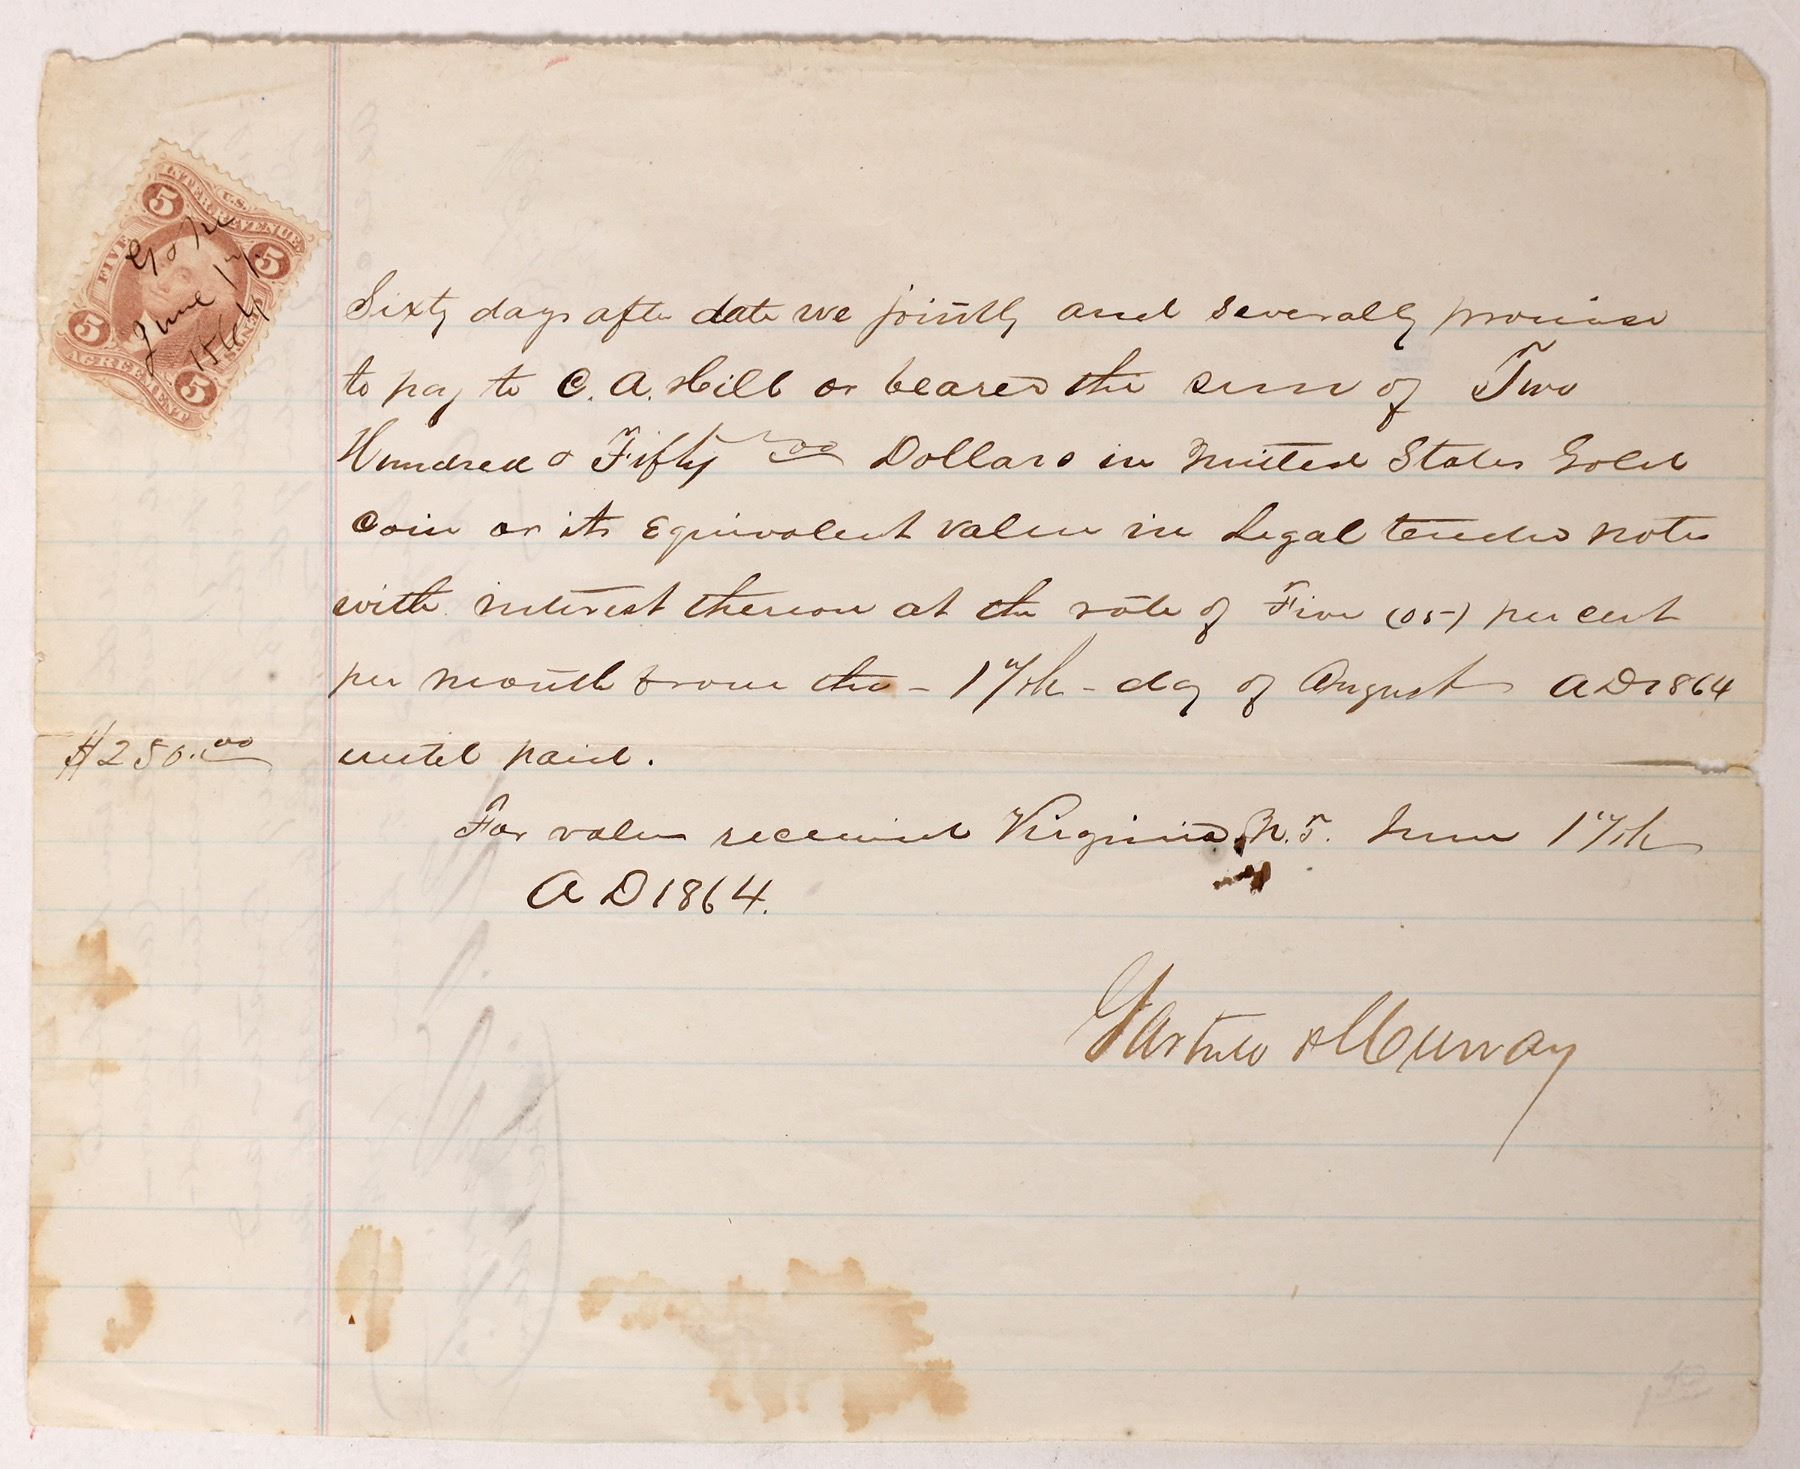 U.S.
INTER. REVENUE.
FIVE
5
5
5
5
AGREEMENT.
June 17.
1864
Sixty days after date we jointly and severally promise
to pay to C. A. Hill or bearer the sum of Two
Hundred & Fifty 00 Dollars in United States Gold
Coin or its Equivalent value in Legal tender notes
with interest thereon at the rate of Five (05) per cent
per month from the - 17th - day of August AD 1864
$250.00 until paid.
For value received Virginia N.T. June 17th
AD 1864.
& Murray